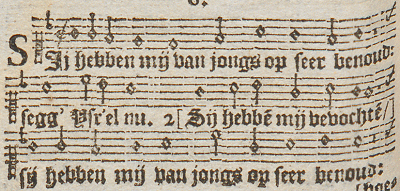 6.
Sij hebben mij van jongs op seer benoud:
segg' Ysr'el nu. 2 [ Sij hebbē mij bevochtē /]
sij hebben mij van jongs op seer benoud: